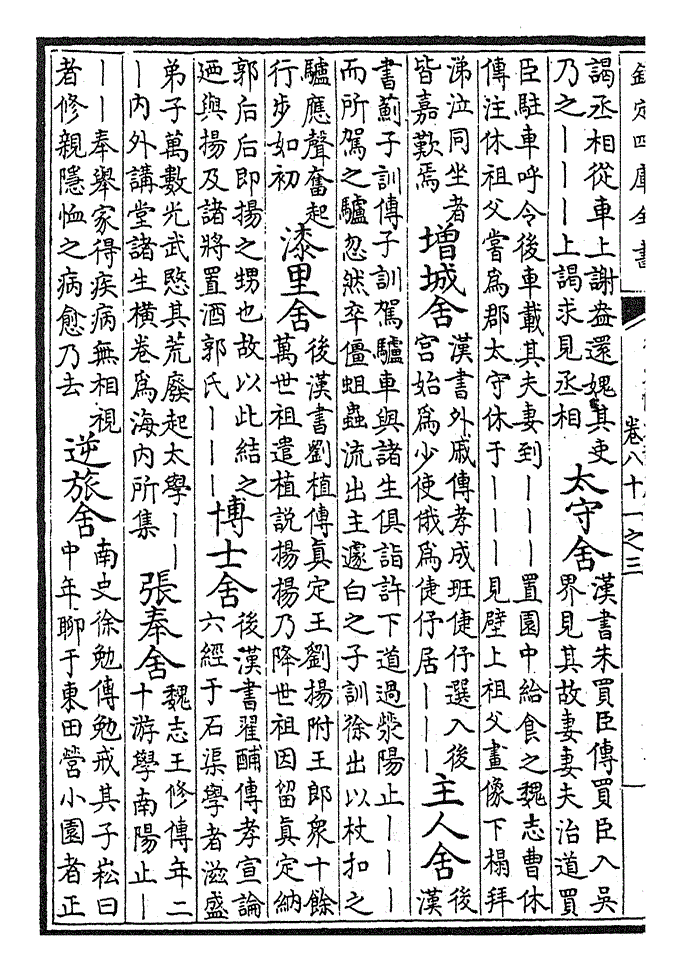 欽定四庫全書
卷八十一之三
一
謁丞相從車上謝盎還媿其吏
乃之丨丨丨上謁求見丞相
太守舍
漢書朱買臣傳買臣入吳
界見其故妻妻夫治道買
臣駐車呼令後車載其夫妻到丨丨丨置園中給食之魏志曹休
傳注休祖父嘗爲郡太守休于丨丨丨見壁上祖父畫像下榻拜
涕泣同坐者
皆嘉歎焉
增城舍
漢書外戚傳孝成班倢伃選入後
宮始爲少使俄爲倢伃居丨丨丨
主人舍
後
漢
書薊子訓傳子訓駕驢車與諸生俱詣許下道過滎陽止丨丨丨
而所駕之驢忽然卒僵蛆蟲流出主遽白之子訓徐出以杖扣之
驢應聲奮起
行步如初
漆里舍
後漢書劉植傳眞定王劉揚附王郎衆十餘
萬世祖遣植說揚揚乃降世祖因留眞定納
郭后后即揚之甥也故以此結之
迺與揚及諸將置酒郭氏丨丨丨
博士舍
後漢書翟酺傳孝宣論
六經于石渠學者滋盛
弟子萬數光武愍其荒廢起太學丨丨
丨内外講堂諸生橫卷爲海内所集
張奉舍
魏志王修傳年二
十游學南陽止丨
丨丨奉舉家得疾病無相視
者修親隱恤之病愈乃去
逆旅舍
南史徐勉傳勉戒其子崧曰
中年聊于東田營小園者正